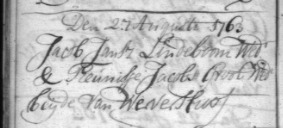 Den 27 Augusti 1763
Jacob Jansz Lindeboom Wedr
& Teunitje Jacobs Groot Wed
beyde van Wevershoof